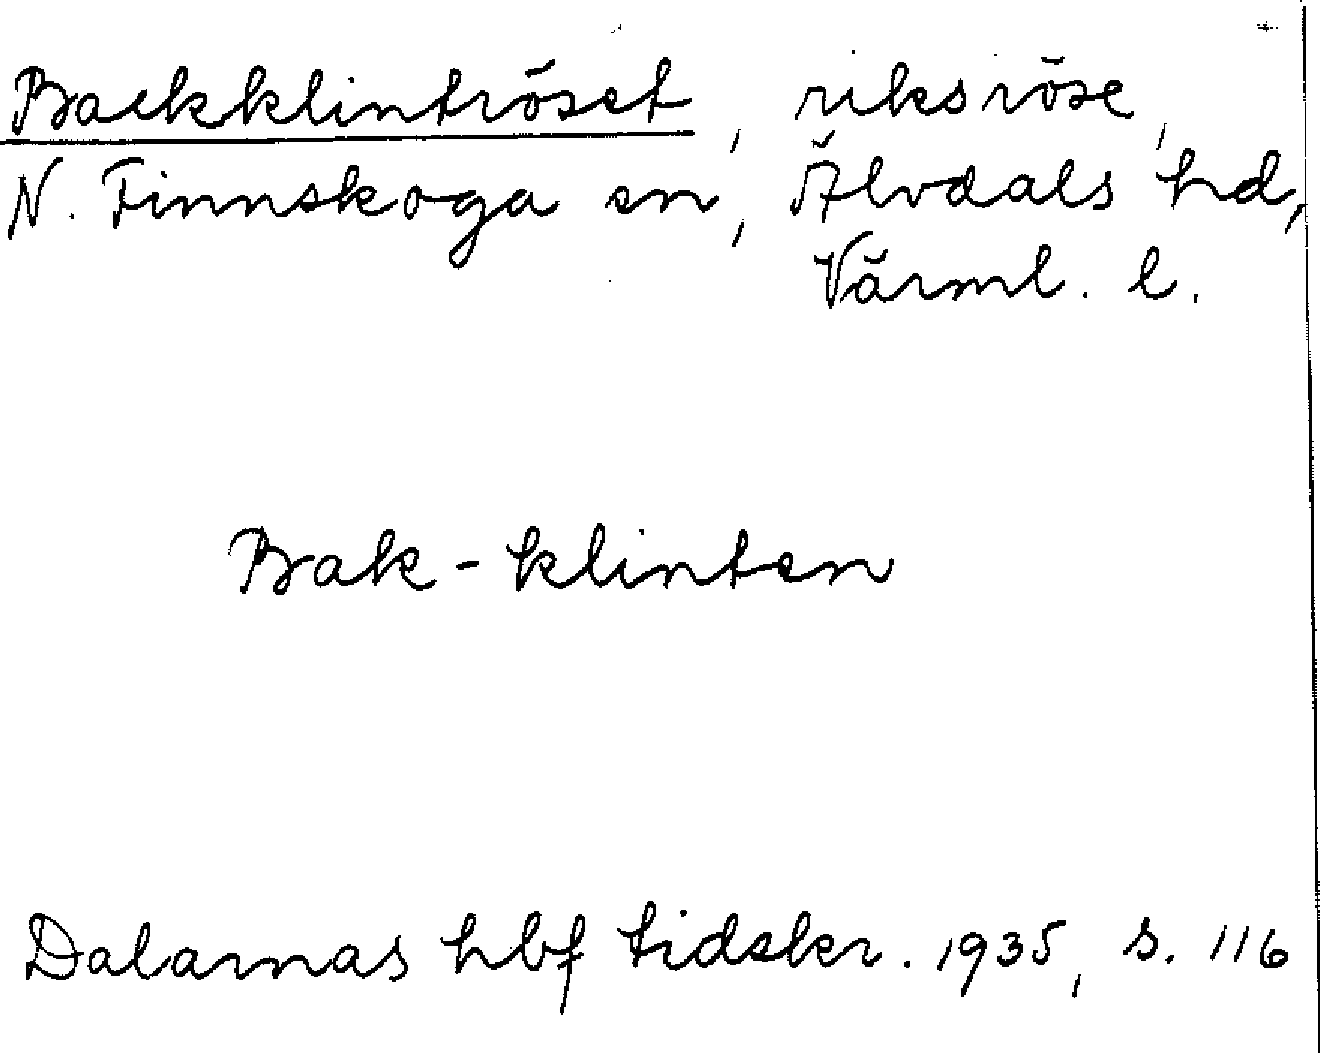 Backklintröset, riksröse,
N. Finnskoga sn, Älvdals hd,
Värml. l.
Bak-klinten
Dalarnas hbf tidskr. 1935, s. 116